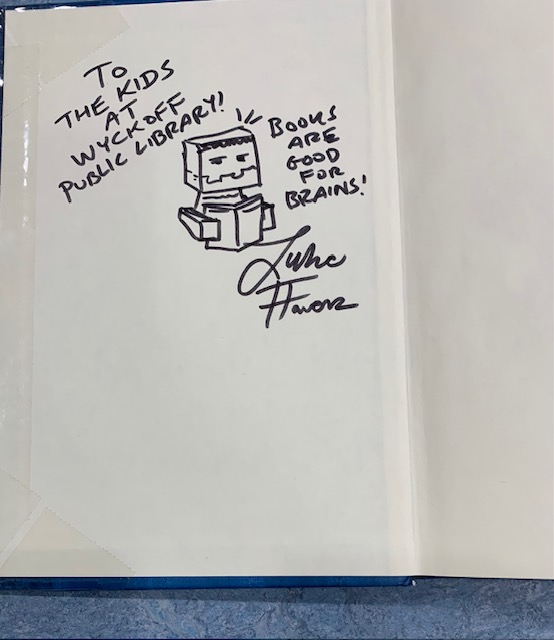 TO
THE KIDS
AT
WYCKOFF
PUBLIC LIBRARY!
BOOKS
ARE
GOOD
FOR
BRAINS!
Luke